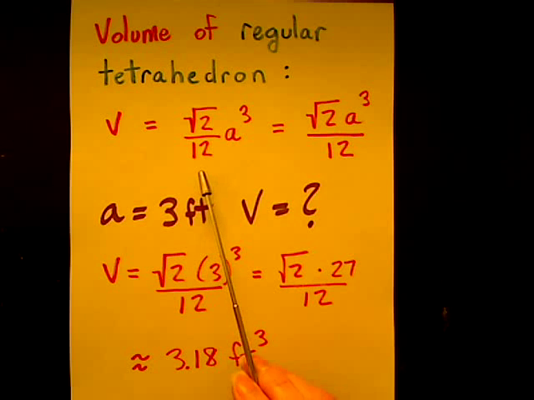 Volume of regular
tetrahedron :
V = √2/12 a³ = √2 a³/12
a = 3 ft V = ?
V = √2 (3)³/12 = √2 · 27/12
≈ 3.18 ft³